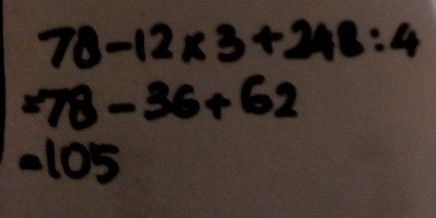 78-12×3+248:4
=78-36+62
=105